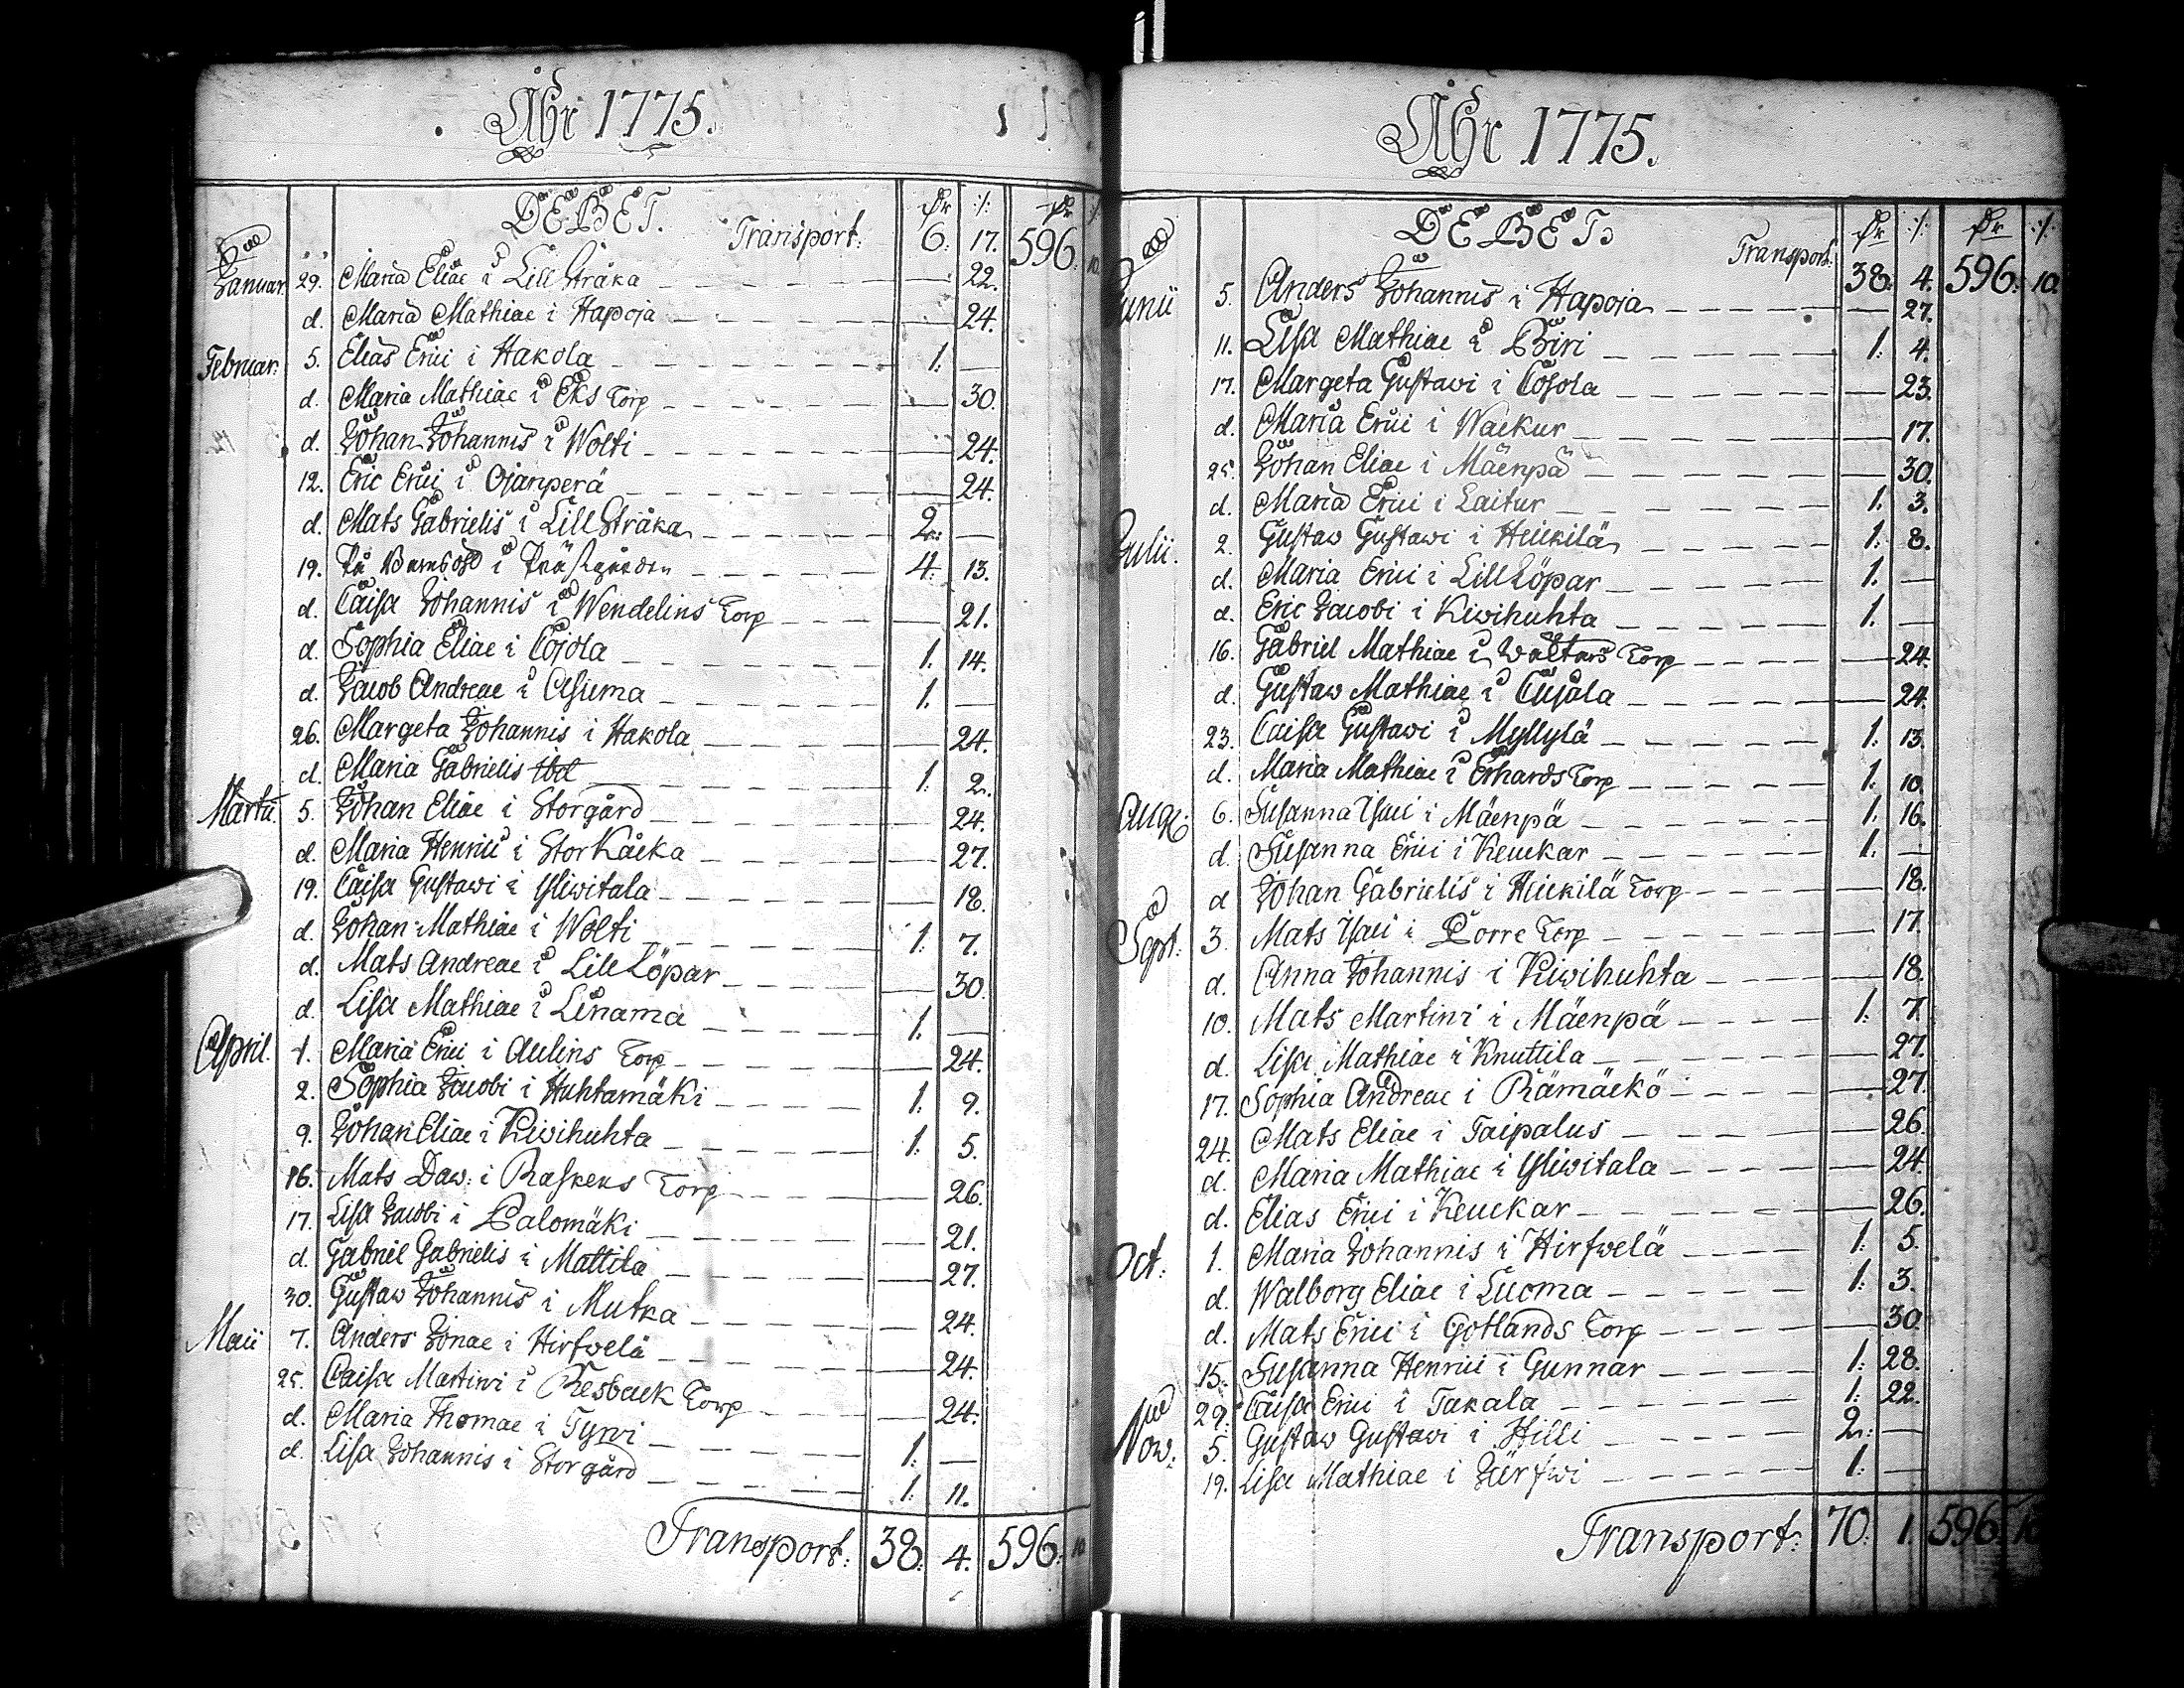 Åhr 1775.
DEBET. Dr :/: Dr :/:
Transport: 6: 17. 596: 10.
Januar. 29. Maria Eliae i Lill Stråka — 22.
d. Maria Mathiae i Hapoja — 24.
Februar: 5. Elias Erici i Hakola 1: —
d. Maria Mathiae i Eks Torp — 30.
d. Johan Johannis i Wolti — 24.
12. Eric Erici i Ojanperä — 24.
d. Mats Gabrielis i Lill Stråka 2: —
19. i Prästgården 4: 13.
d. Caisa Johannis i Wendelins Torp — 21.
d. Sophia Eliae i Cojola 1. 14.
d. Jacob Andreae i Asuma 1. —
26. Margeta Johannis i Hakola — 24.
d. Maria Gabrielis ibd 1. 2.
Martii. 5. Johan Eliae i Storgård — 24.
d. Maria Henrici i Stor Kåcka — 27.
19. Caisa Gustavi i Yliwitala — 18.
d. Johan Mathiae i Wolti 1. 7.
d. Mats Andreae i Lill Löpar — 30.
d. Lisa Mathiae i Linama 1. —
April. 1. Maria Erici i Aulins Torp — 24.
2. Sophia Jacobi i Huhtamäki 1: 9.
9. Johan Eliae i Kiwihuhta 1: 5.
16. Mats Daw: i Raskens Torp — 26.
17. Lisa Jacobi i Palomäki — 21.
d. Gabriel Gabrielis i Mattila — 27.
30. Gustaw Johannis i Mutka — 24.
Maii 7. Anders Jonae i Hirfwelä — 24.
25. Caisa Martini i Resback Torp — 24.
d. Maria Thomae i Tyrni 1: —
d. Lisa Johannis i Storgård 1: 11.
Transport: 38: 4. 596: 10.
Åhr 1775.
DEBET. Dr :/: Dr :/:
Transport: 38: 4. 596: 10.
Junii 5. Anders Johannis i Hapoja — 27.
11. Lisa Mathiae i Piri 1: 4.
17. Margeta Gustawi i Cosola — 23.
d. Maria Erici i Wackur — 17.
25. Johan Eliae i Mäenpä — 30.
d. Maria Erici i Laitur 1. 3.
Julii. 2. Gustaw Gustawi i Heickilä 1: 8.
d. Maria Erici i Lill Löpar 1. —
d. Eric Jacobi i Kiwihuhta 1. —
16. Gabriel Mathiae i Waltars Torp — 24.
d. Gustaw Mathiae i — 24.
23. Caisa Gustawi i Myllylä 1: 13.
d. Maria Mathiae i Erhards Torp 1: 10.
Aug: 6. Susanna Isaci i Mäenpä 1. 16.
d. Susanna Erici i Keuckar 1. —
d Johan Gabrielis i Heickilä Torp — 18.
Sept: 3. Mats Isaci i Porre Torp — 17.
d. Anna Johannis i Kiwihuhta — 18.
10. Mats Martini i Mäenpä 1: 7.
d. Lisa Mathiae i Knuttila — 27.
17. Sophia Andreae i Rämäckö — 27.
24. Mats Eliae i Taipalus — 26.
d. Maria Mathiae i Yliwitala — 24.
d. Elias Erici i Keuckar — 26.
Oct: 1. Maria Johannis i Hirfwelä 1: 5.
d. Walborg Eliae i Luoma 1: 3.
d. Mats Erici i Gotlands Torp — 30.
15. Susanna Henrici i Gunnar 1: 28.
29. Caisa Erici i Takala 1: 22.
Now: 5. Gustaw Gustawi i Hilli 2: —
19. Lisa Mathiae i Järfwi 1: —
Transport: 70: 1. 596: 10